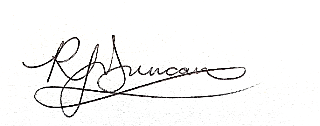 RJ Duncan